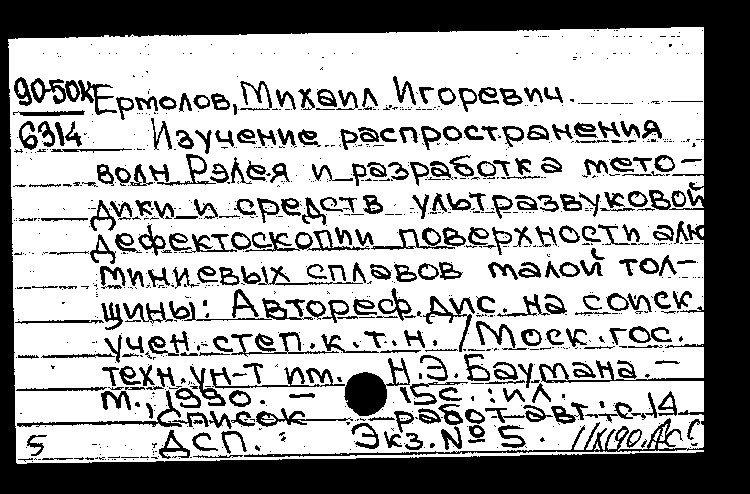 90-50к Ермолов, Михаил Игоревич.
6314 Изучение распространения
волн Рэлея и разработка мето-
дики и средств ультразвуковой
дефектоскопии поверхности алю
миниевых сплавов малой тол-
щины: Автореф. дис. на соиск.
учен. степ. к.т.н. /Моск. гос.
техн. ун-т им. Н.Э.Баумана. –
М., 1990. – 15с. : ил.
Список работ авт.: с.14
5 ДСП. Экз.№ 5.